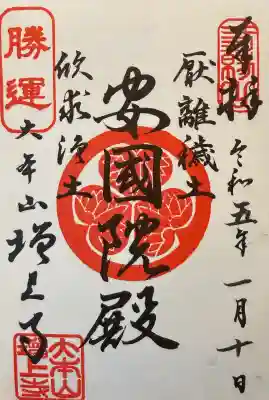 奉拝
令和五年一月十日
厭離穢土
安國院殿
欣求浄土
勝運
大本山増上寺
大本山
増上寺